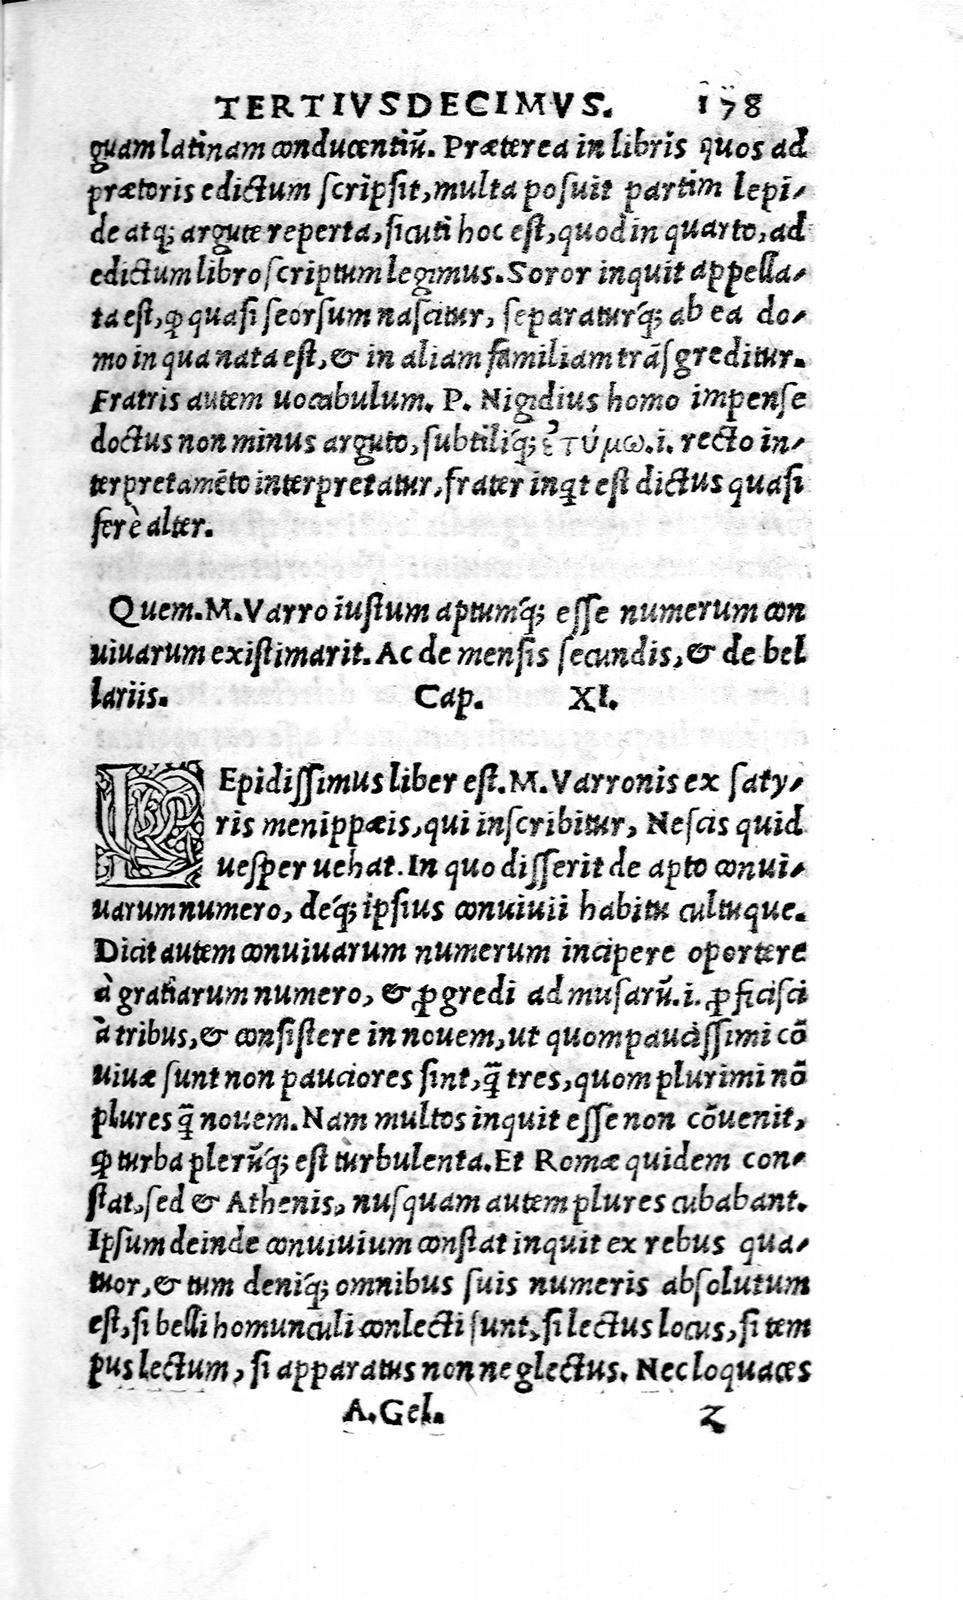 TERTIVSDECIMVS. 178
guam latinam conducentiũ. Præterea in libris quos ad
prætoris edictum scripsit, multa posuit partim lepi-
de atq; argute reperta, sicuti hoc est, quod in quarto, ad
edictum libro scriptum legimus. Soror inquit appella-
ta est, ꝙ quasi seorsum nascitur, separaturq́; ab ea do-
mo in qua nata est, & in aliam familiam trãsgreditur.
Fratris autem uocabulum. P. Nigidius homo impense
doctus non minus arguto, subtiliq́; ἐτύμω.i. recto in-
terpretamẽto interpretatur, frater inqt est dictus quasi
ferè alter.
Quem. M. Varro iustum aptumq́; esse numerum con
uiuarum existimarit. Ac de mensis secundis, & de bel
lariis. Cap. XI.
LEpidissimus liber est. M. Varronis ex saty-
ris menippæis, qui inscribitur, Nescis quid
uesper uehat. In quo disserit de apto conui-
uarum numero, deq́; ipsius conuiuii habitu cultuque.
Dicit autem conuiuarum numerum incipere oportere
à gratiarum numero, & ꝓgredi ad musarũ.i. ꝓficisci
à tribus, & consistere in nouem, ut quom paucissimi cõ
uiuæ sunt non pauciores sint, q̃ tres, quom plurimi nõ
plures q̃ nouem. Nam multos inquit esse non cõuenit,
ꝙ turba plerũq́; est turbulenta. Et Romæ quidem con-
stat, sed & Athenis, nusquam autem plures cubabant.
Ipsum deinde conuiuium constat inquit ex rebus qua-
tuor, & tum deniq́; omnibus suis numeris absolutum
est, si belli homunculi conlecti sunt, si lectus locus, si tem
pus lectum, si apparatus non neglectus. Nec loquaces
A. Gel. z